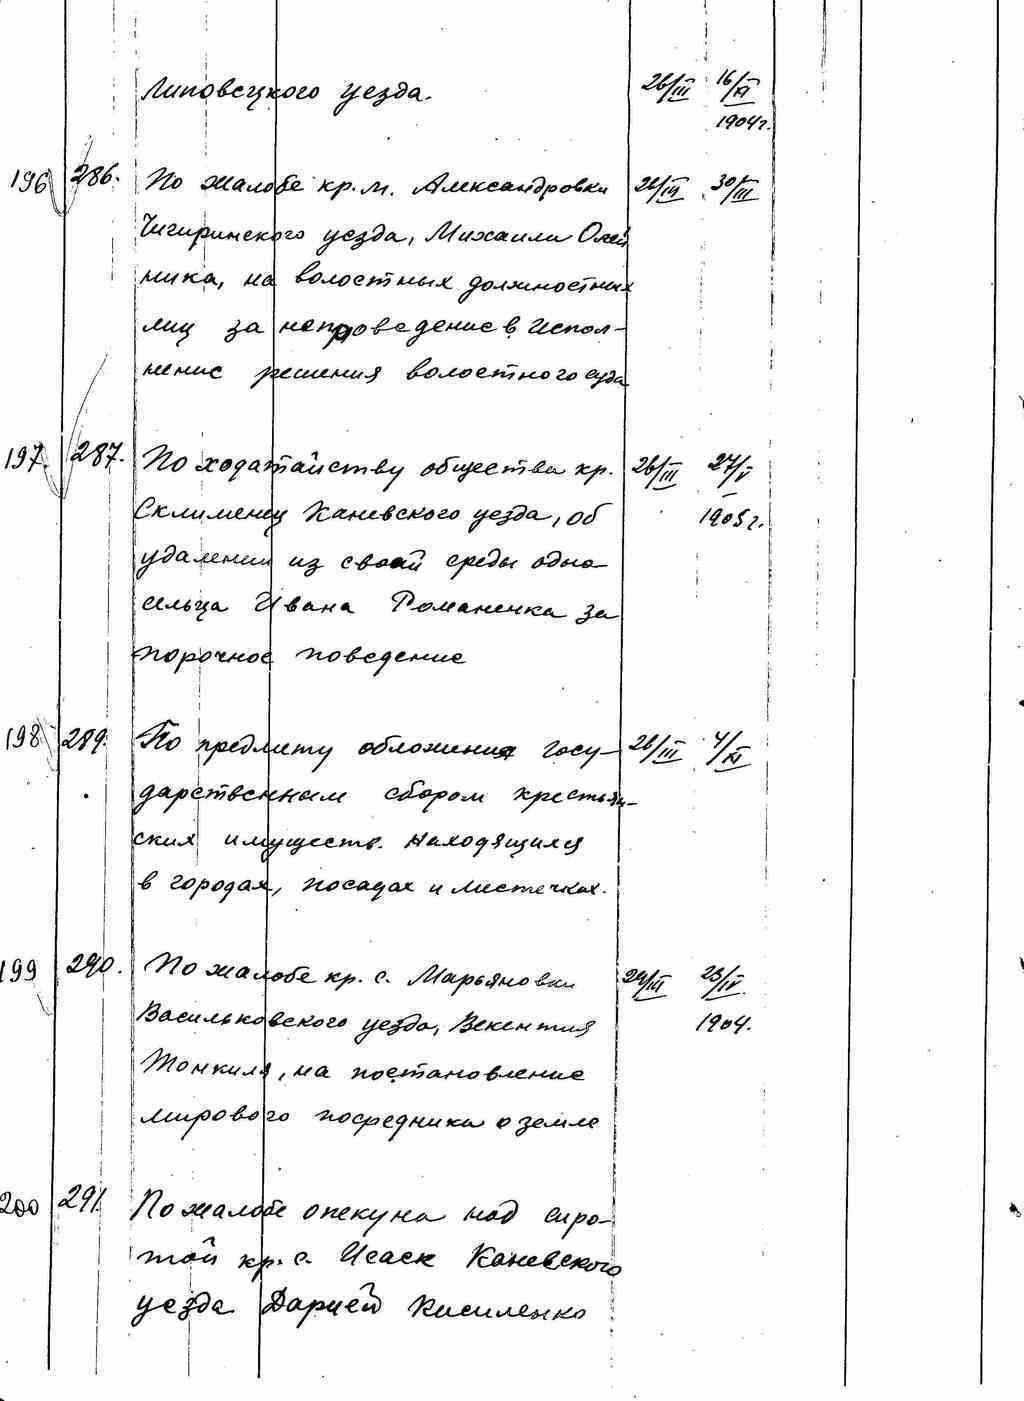 Липовецкого уезда. 26/III 16/XI
1904 г.
196 286. По жалобе кр. м. Александровки 26/III 30/III
Чигиринского уезда, Михаила Олей
ника, на волостных должностных
лиц за непроведение в испол-
нение решения волостного суда
197. 287. По ходатайству общества кр. 26/III 27/V
Склименец Каневского уезда, об 1905 г.
удалении из своей среды одно-
сельца Ивана Романенка за
порочное поведение
198 289. По предмету обложения госу- 26/III 4/XI
дарственным сбором крестьян-
ских имуществ. находящихся
в городах, посадах и местечках.
199 290. По жалобе кр. с. Марьяновки 29/III 23/IV
Васильковского уезда, Векентия 1904.
Тонкиля, на постановление
мирового посредника о земле
200 291. По жалобе опекуна над сиро-
той кр. с. Исаек Каневского
уезда Дарией Кисиленко